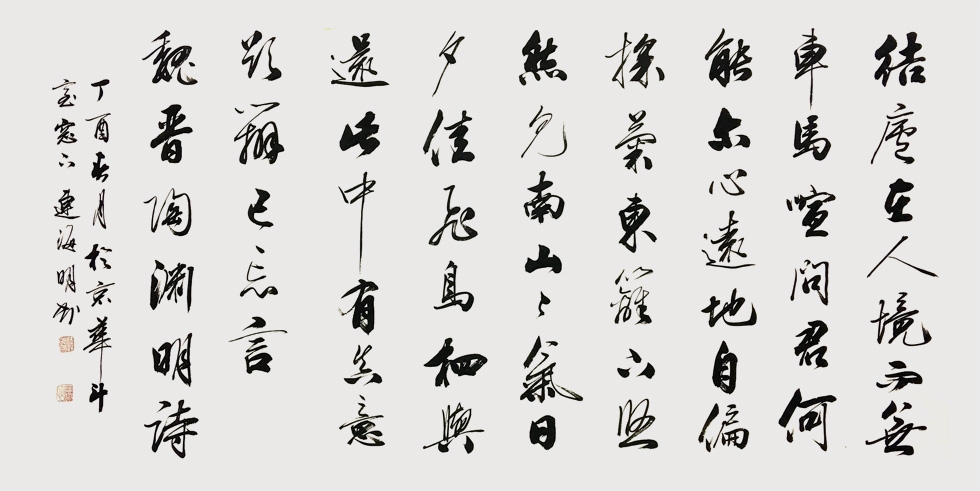 結廬在人境而無
車馬喧問君何
能尔心遠地自偏
採菊東籬下悠
然見南山々氣日
夕佳飛鳥相與
還此中有真意
欲辨已忘言
魏晋陶渊明詩
丁酉春月於京華斗
室窓下連海明